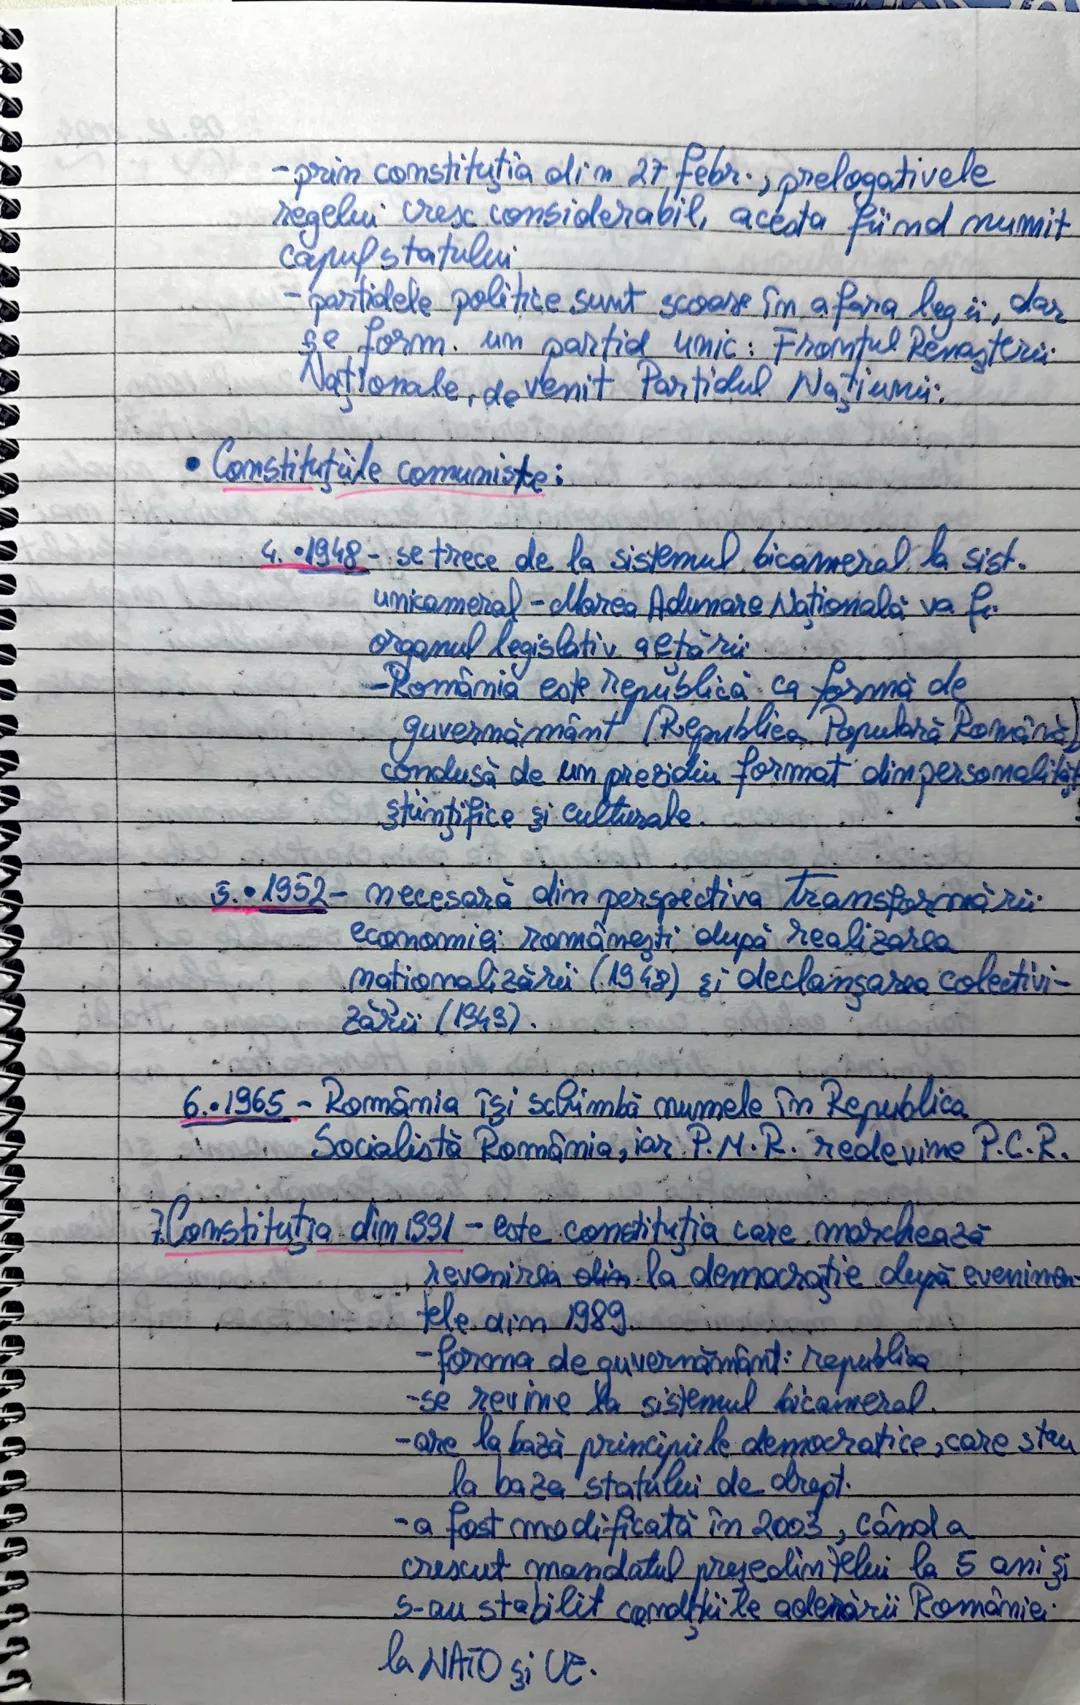 -prin constituția din 27 febr., prelogativele
regelui cresc considerabil, acesta fiind numit
capul statului
-partidele politice sunt scoase în afara legii, dar
se form. un partid unic: Frontul Renașterii
Naționale, devenit Partidul Națiunii.
• Constituțiile comuniste:
4. •1948 - se trece de la sistemul bicameral la sist.
unicameral - Marea Adunare Națională va fi
organul legislativ al țării
-România este republică ca formă de
guvernământ (Republica Populară Română)
condusă de un prezidiu format din personalități
științifice și culturale.
5. • 1952 - necesară din perspectiva transformării
economiei românești după realizarea
naționalizării (1948) și declanșarea colectivi-
zării (1949).
6. •1965 - România își schimbă numele în Republica
Socialistă România, iar P.M.R. redevine P.C.R.
7. Constituția din 1991 - este constituția care marchează
revenirea la democrație după evenimen-
tele din 1989.
-forma de guvernământ: republica
-se revine la sistemul bicameral.
-are la bază principiile democratice, care stau
la baza statului de drept.
-a fost modificată în 2003, când a
crescut mandatul președintelui la 5 ani și
s-au stabilit condițiile aderării României
la NATO și UE.